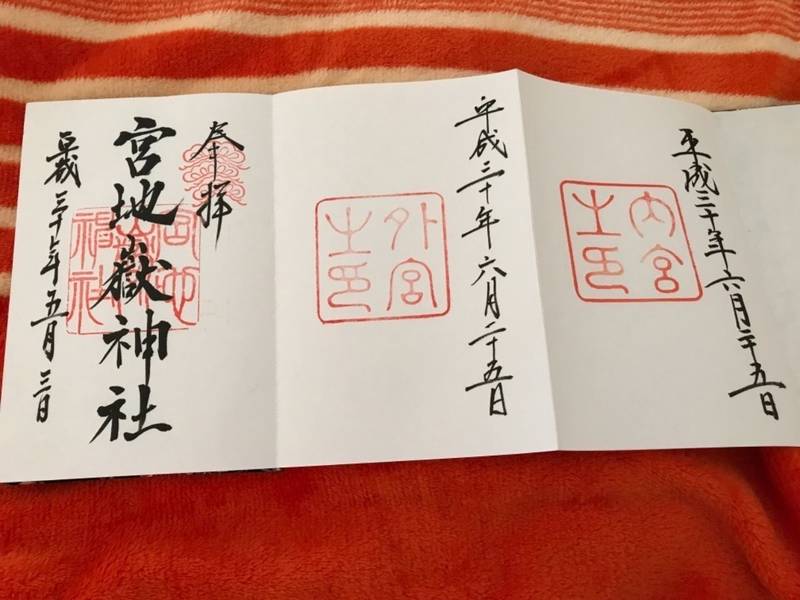 平成三十年六月二十五日
内宮之印
平成三十年六月二十五日
外宮之印
奉拝
宮地嶽神社
宮地嶽神社
平成三十年五月三日